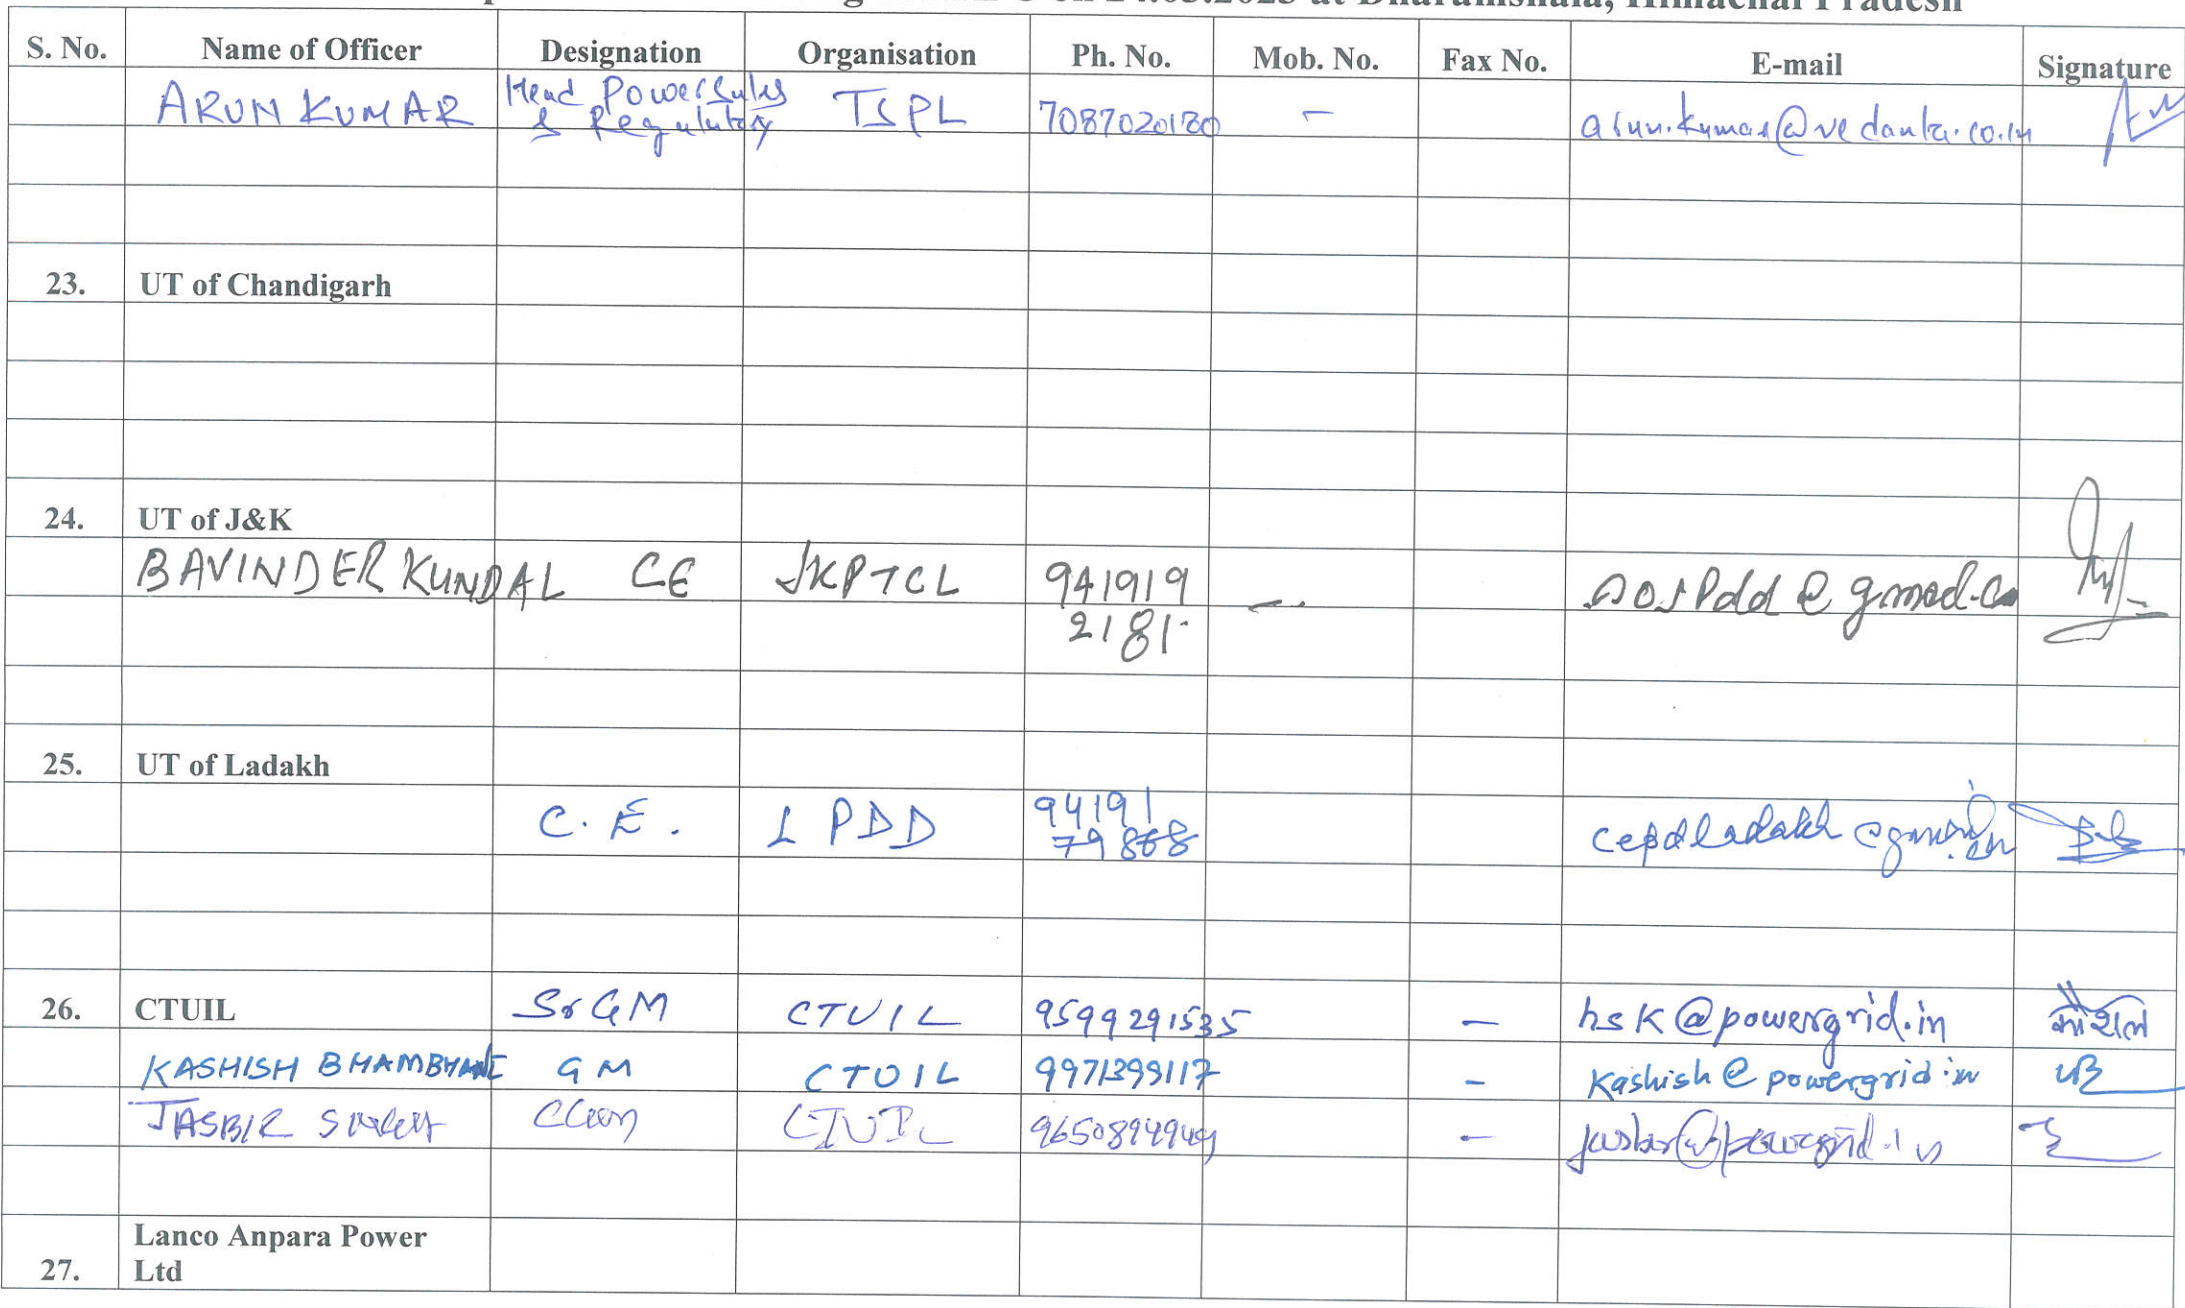 at Dharamshala, Himachal Pradesh
S. No. Name of Officer Designation Organisation Ph. No. Mob. No. Fax No. E-mail Signature
ARUN KUMAR Head Power Sales TSPL 7087020180 - arun.kumar@vedanta.co.in
& Regulatory
23. UT of Chandigarh
24. UT of J&K
BAVINDER KUNDAL CE JKPTCL 941919 -
2181.
25. UT of Ladakh
C. E. LPDD 94191
26. CTUIL Sr GM CTUIL 9599291535 - hsk@powergrid.in
KASHISH BHAMBHANI GM CTUIL 9971399117 - kashish@powergrid.in
JASBIR CTUIL 9650894949 -
Lanco Anpara Power
27. Ltd